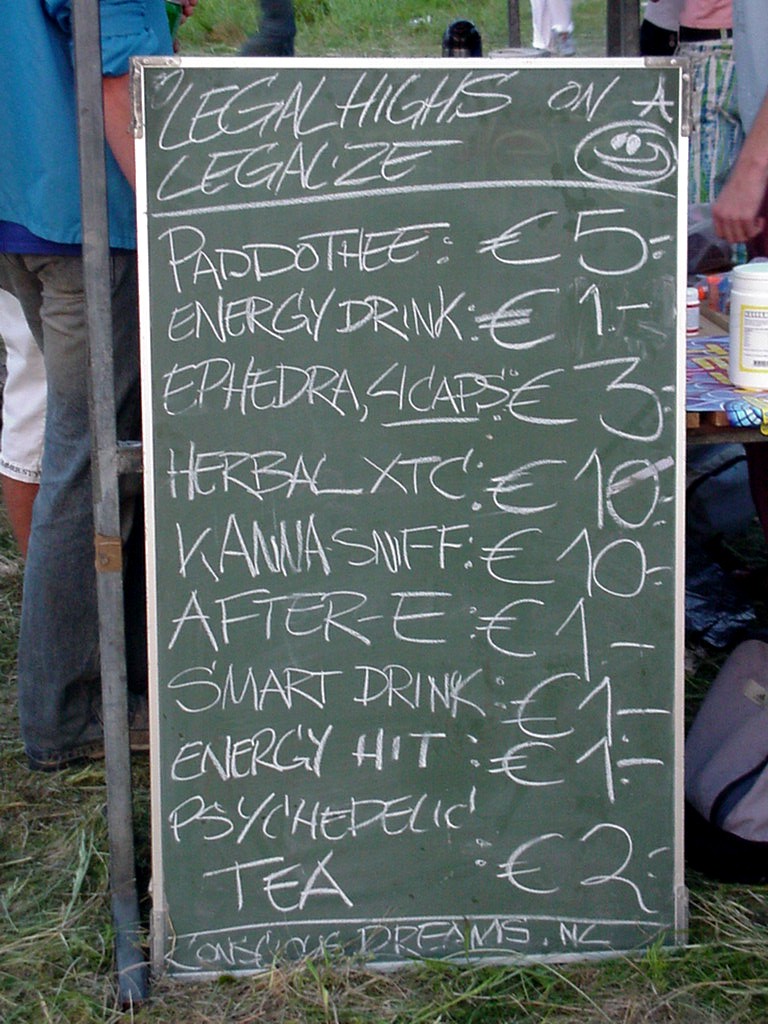 LEGAL HIGHS ON A
LEGALIZE
PADDOTHEE: € 5:-
ENERGY DRINK: € 1-
EPHEDRA, 4 CAPS: € 3:-
HERBAL XTC: € 10:-
KANNA-SNIFF: € 10:-
AFTER-E: € 1-
SMART DRINK: € 1:-
ENERGY HIT: € 1:-
PSYCHEDELIC
TEA : € 2:-
CONSCIOUS DREAMS.NL